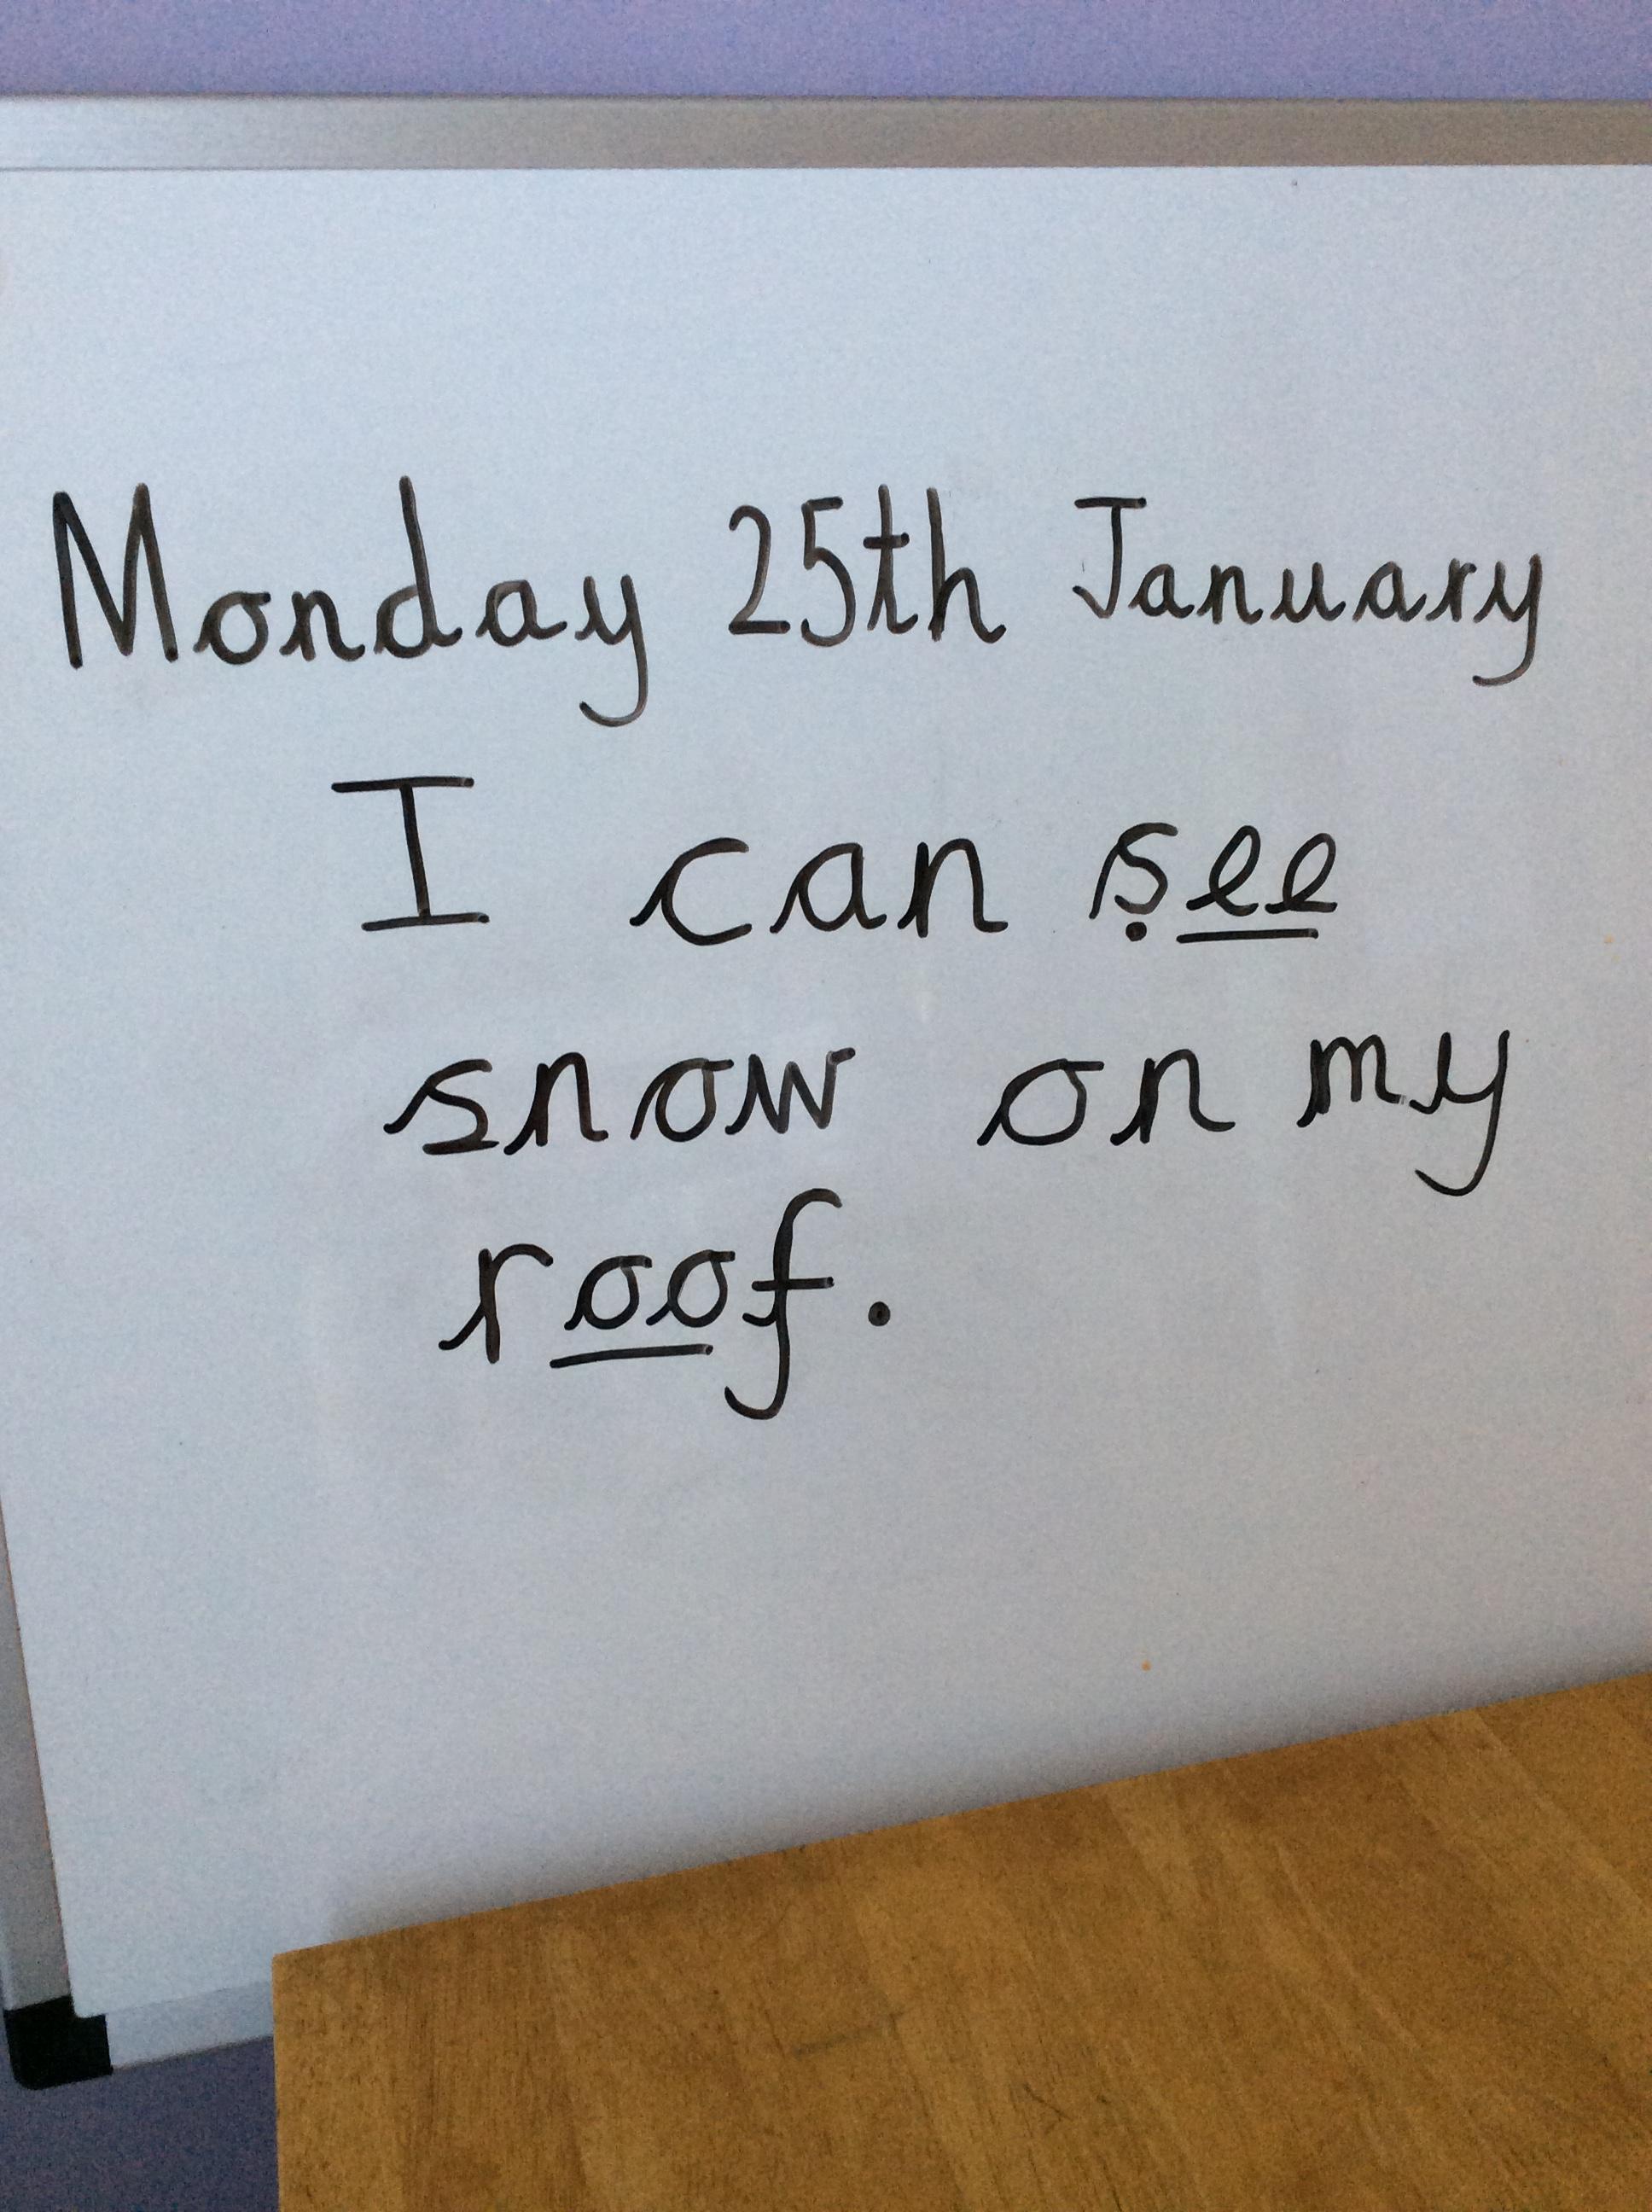 Monday 25th January
I can see
snow on my
roof.